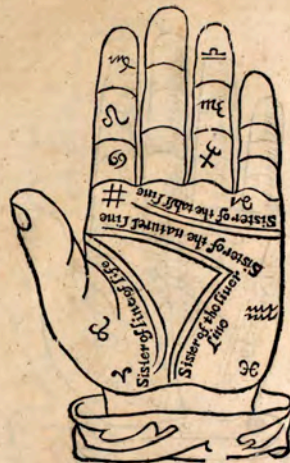 Sister of the tabll line
Sister of the naturel line
Sister of line of life
Sister of the liuer
line